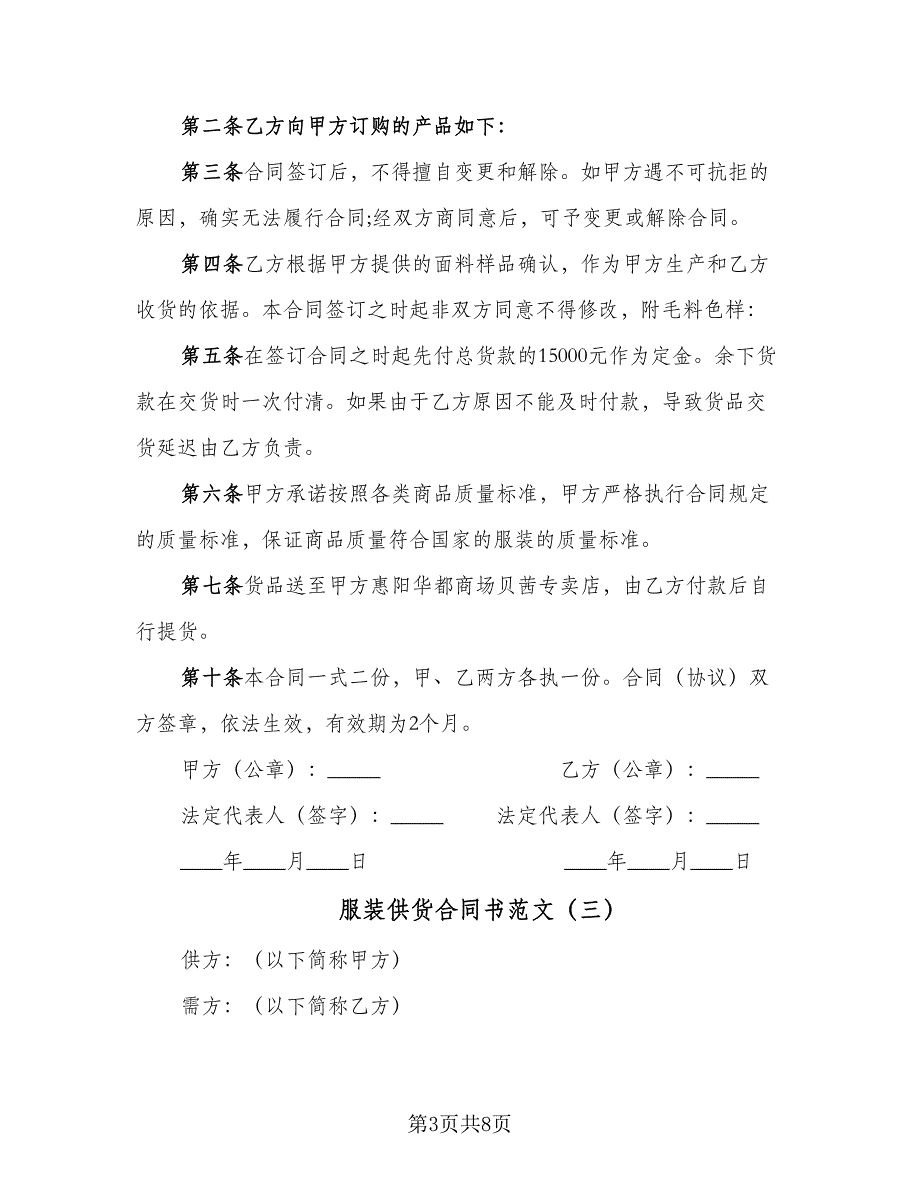 第二条乙方向甲方订购的产品如下：
第三条合同签订后，不得擅自变更和解除。如甲方遇不可抗拒的
原因，确实无法履行合同;经双方商同意后，可予变更或解除合同。
第四条乙方根据甲方提供的面料样品确认，作为甲方生产和乙方
收货的依据。本合同签订之时起非双方同意不得修改，附毛料色样：
第五条在签订合同之时起先付总货款的15000元作为定金。余下货
款在交货时一次付清。如果由于乙方原因不能及时付款，导致货品交
货延迟由乙方负责。
第六条甲方承诺按照各类商品质量标准，甲方严格执行合同规定
的质量标准，保证商品质量符合国家的服装的质量标准。
第七条货品送至甲方惠阳华都商场贝茜专卖店，由乙方付款后自
行提货。
第十条本合同一式二份，甲、乙两方各执一份。合同（协议）双
方签章，依法生效，有效期为2个月。
甲方（公章）：_____ 乙方（公章）：_____
法定代表人（签字）：_____ 法定代表人（签字）：_____
____年____月____日 ____年____月____日
服装供货合同书范文（三）
供方：（以下简称甲方）
需方：（以下简称乙方）
第3页共8页